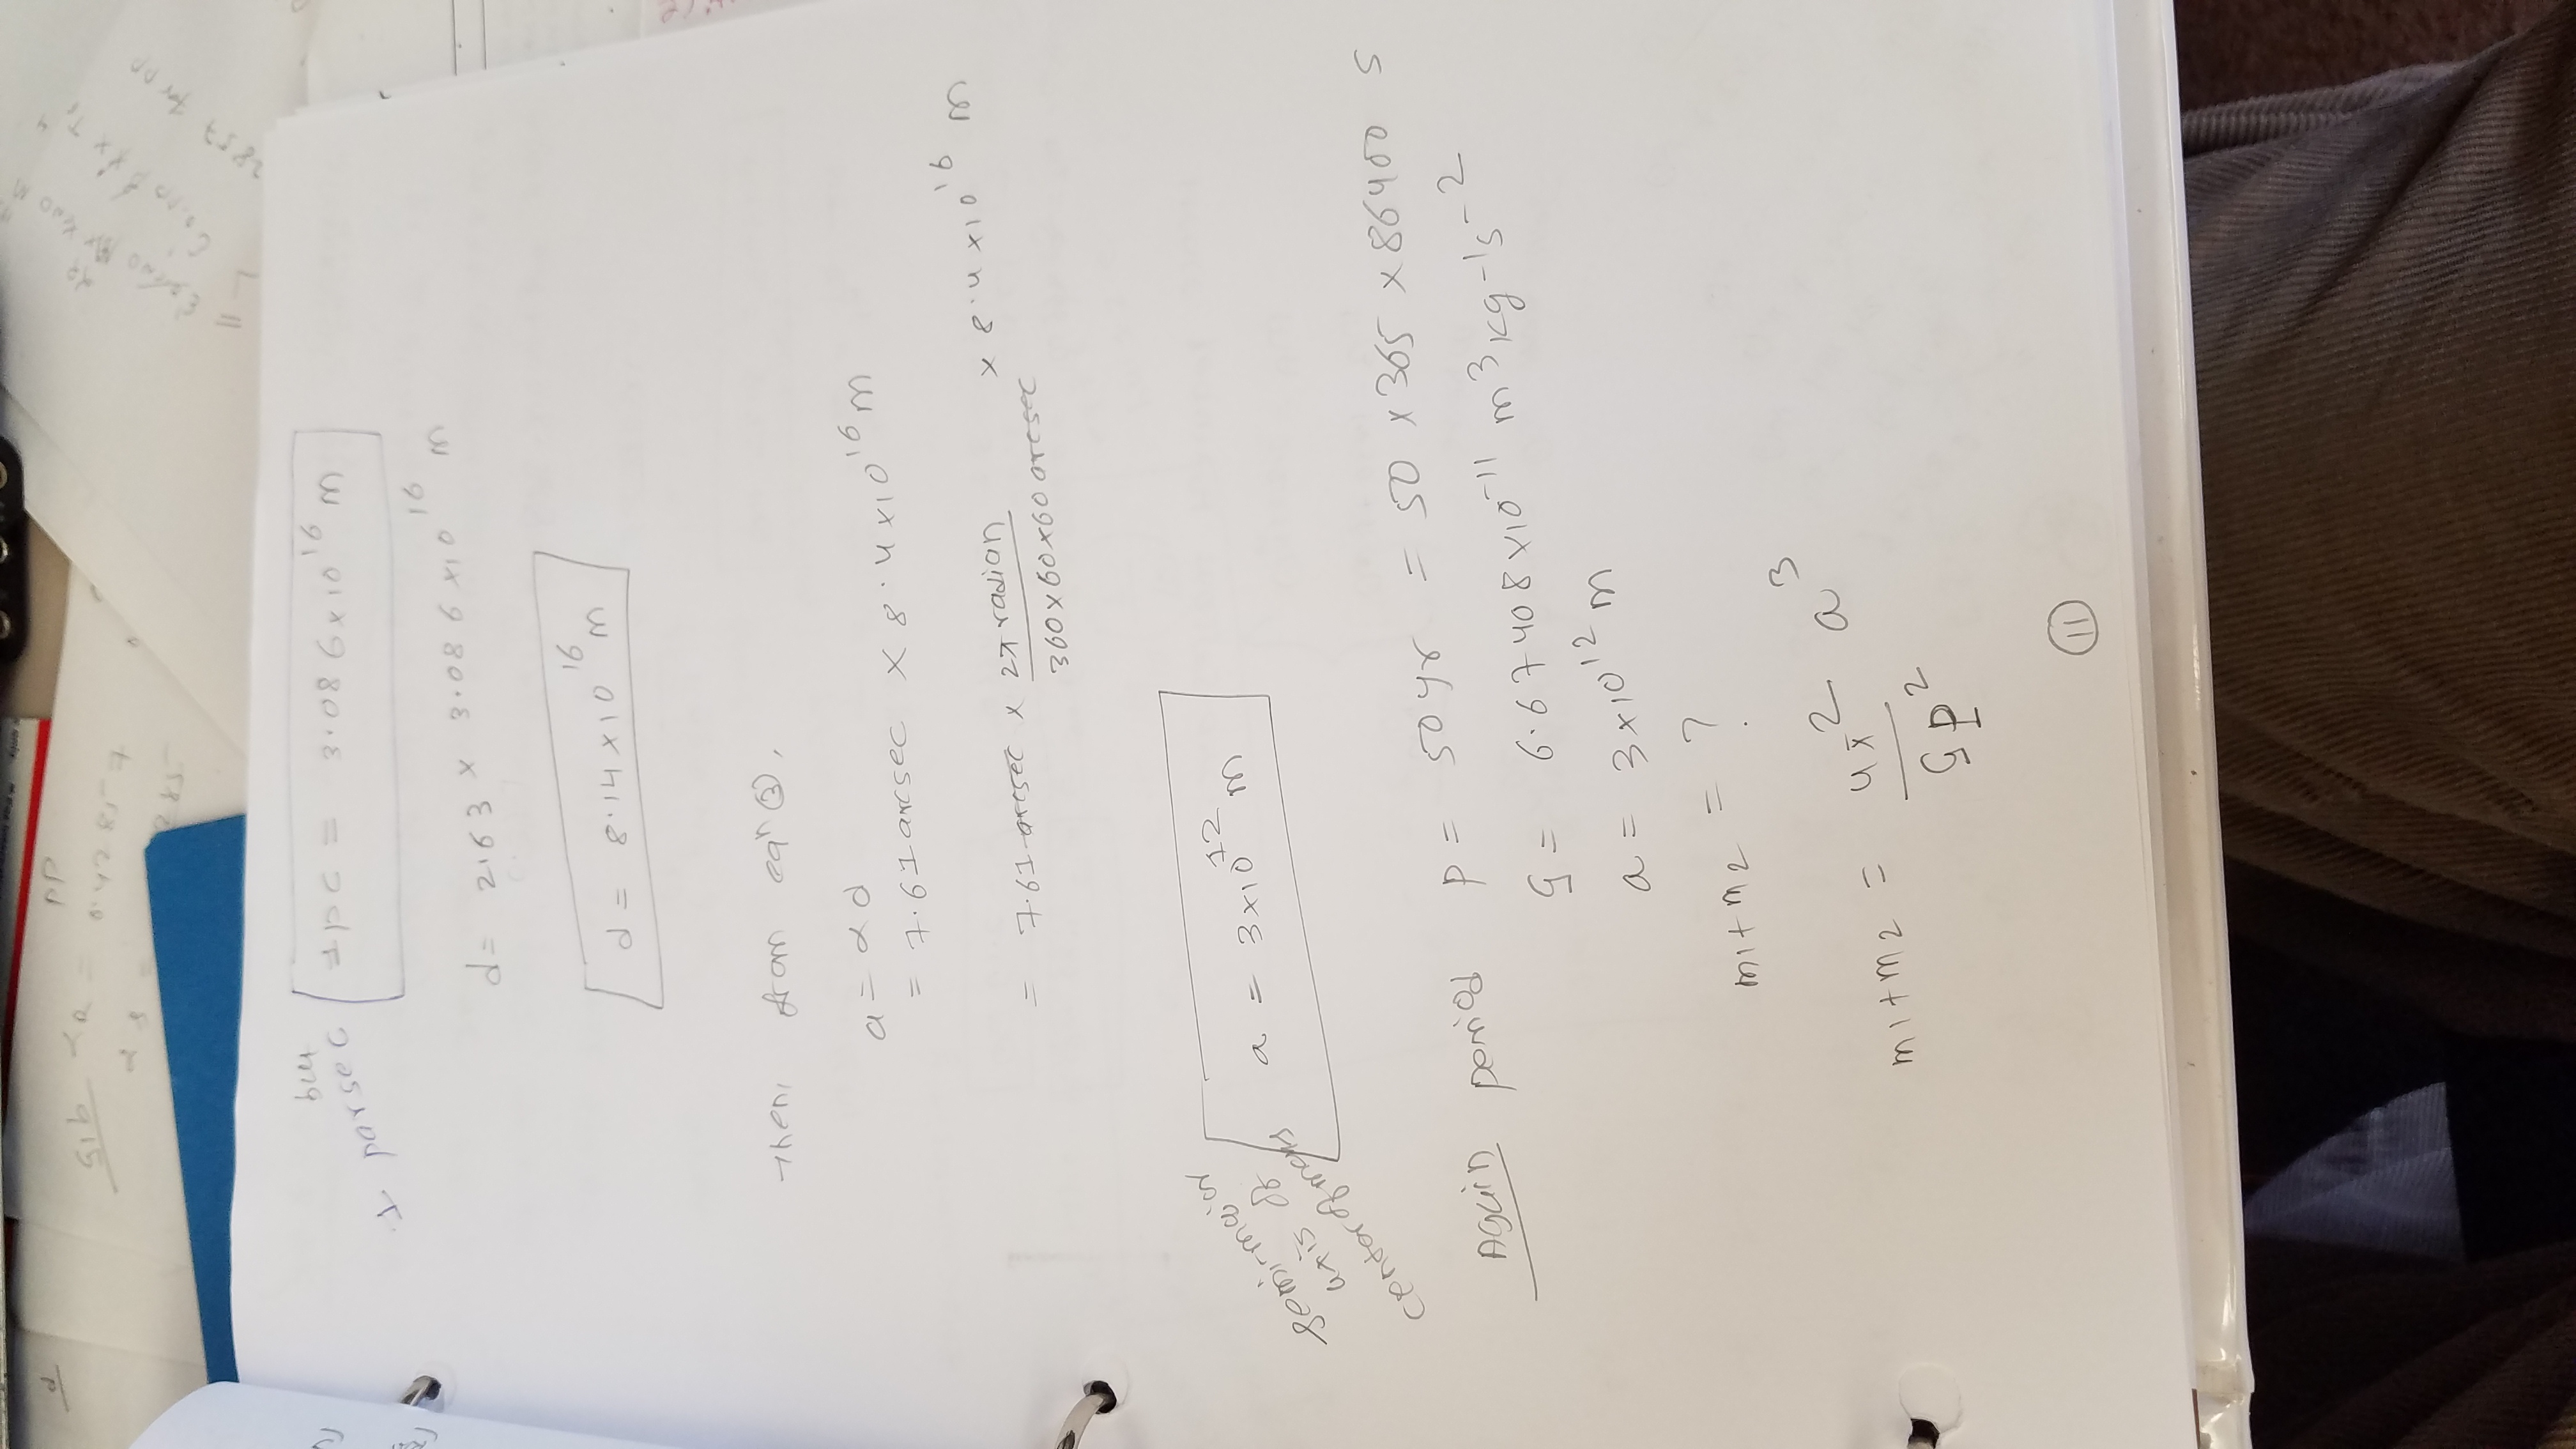 PP
51b α R = 0.42857
285
2857 For PP
but
1 parsec
1pc = 3.086 x 10^16 m
d = 2.63 x 3.086 x 10^16 m
d = 8.14 x 10^16 m
Then, from eqn ③,
a = α d
= 7.61 arcsec x 8.4 x 10^16 m
= 7.61 arcsec x 2π radian / 360 x 60 x 60 arcsec x 8.4 x 10^16 m
semi-major
axis of
center of mass
a = 3x10^12 m
Again period P = 50 yr = 50 x 365 x 86400 s
G = 6.67408 x 10^-11 m^3 kg^-1 s^-2
a = 3 x 10^12 m
m1 + m2 = ?
m1 + m2 = 4π^2 / G P^2 a^3
11